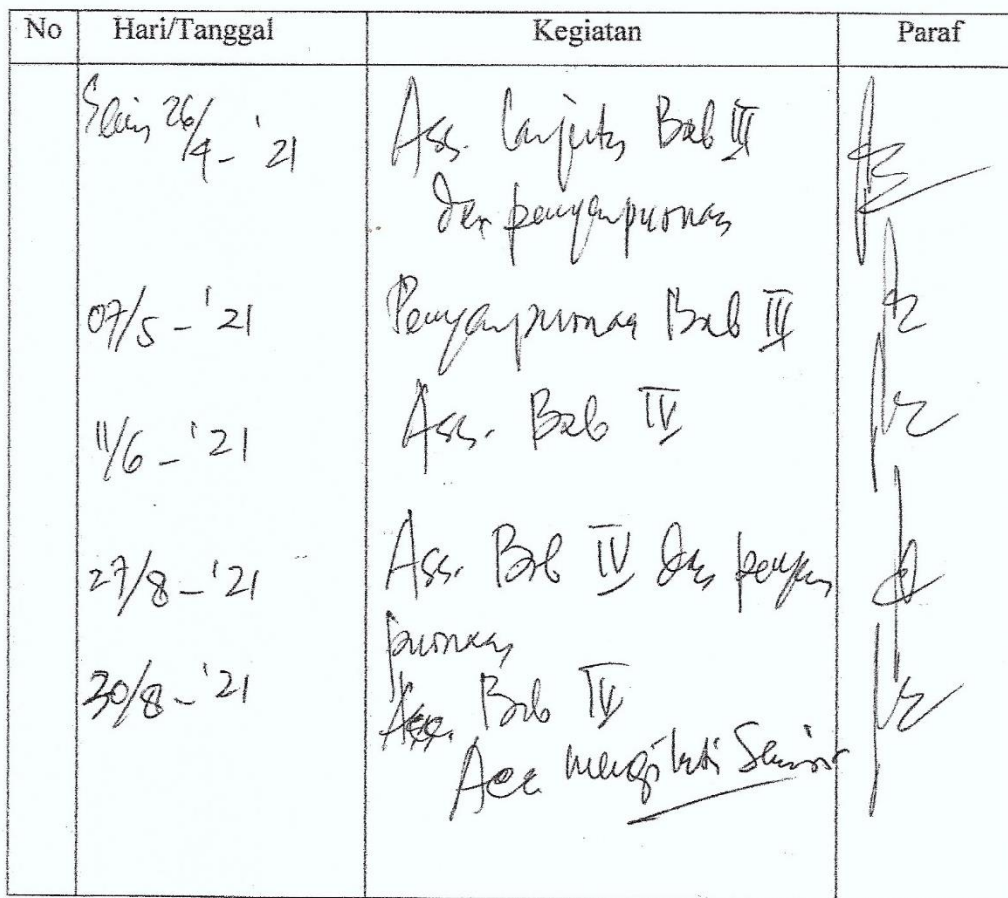 No Hari/Tanggal Kegiatan Paraf
Senin 26/4-'21 Ass. lanjutan Bab III
dan penyempurnaan
07/5-'21 Penyempurnaan Bab III
11/6-'21 Ass. Bab IV
27/8-'21 Ass. Bab IV dan penyem
purnaan
30/8-'21 Acc. Bab IV
Acc mengikuti Seminar